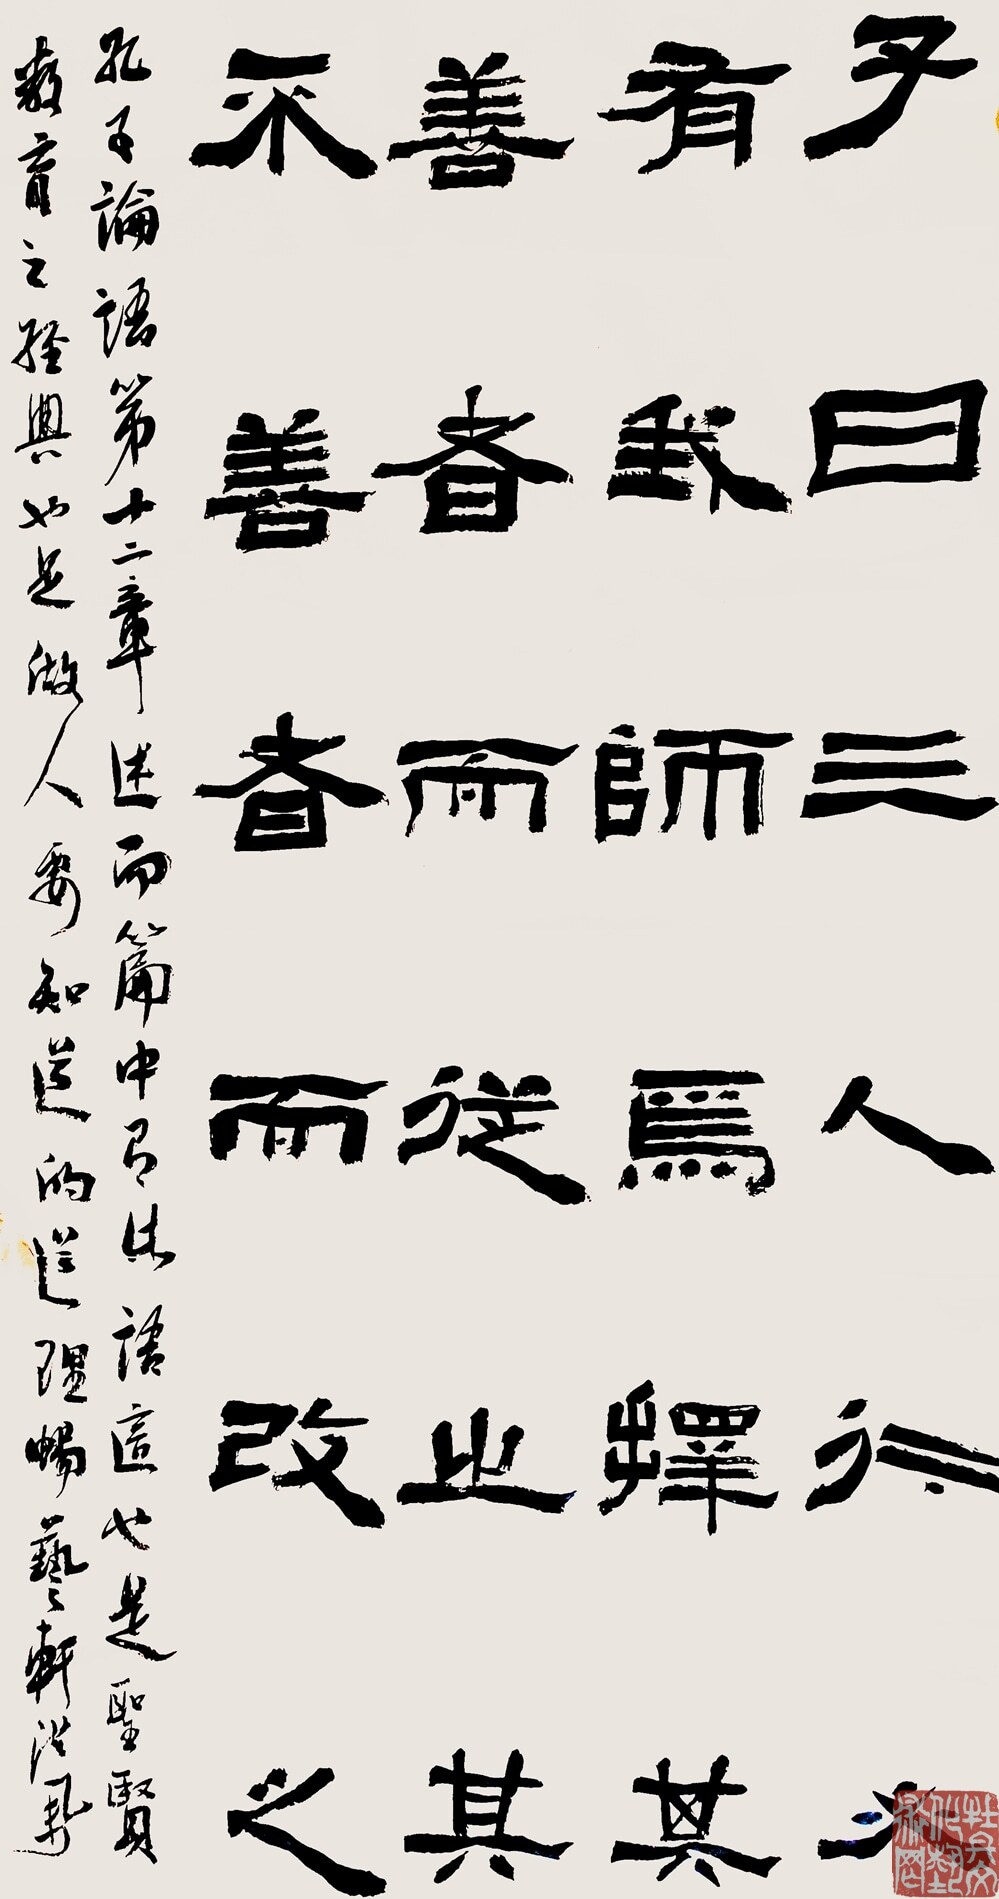 子曰三人行必
有我師焉擇其
善者而從之其
不善者而改之
孔子論語第十二章述而篇中有此語這也是聖賢
教育之經典也是做人要知道的道理暢藝軒洪